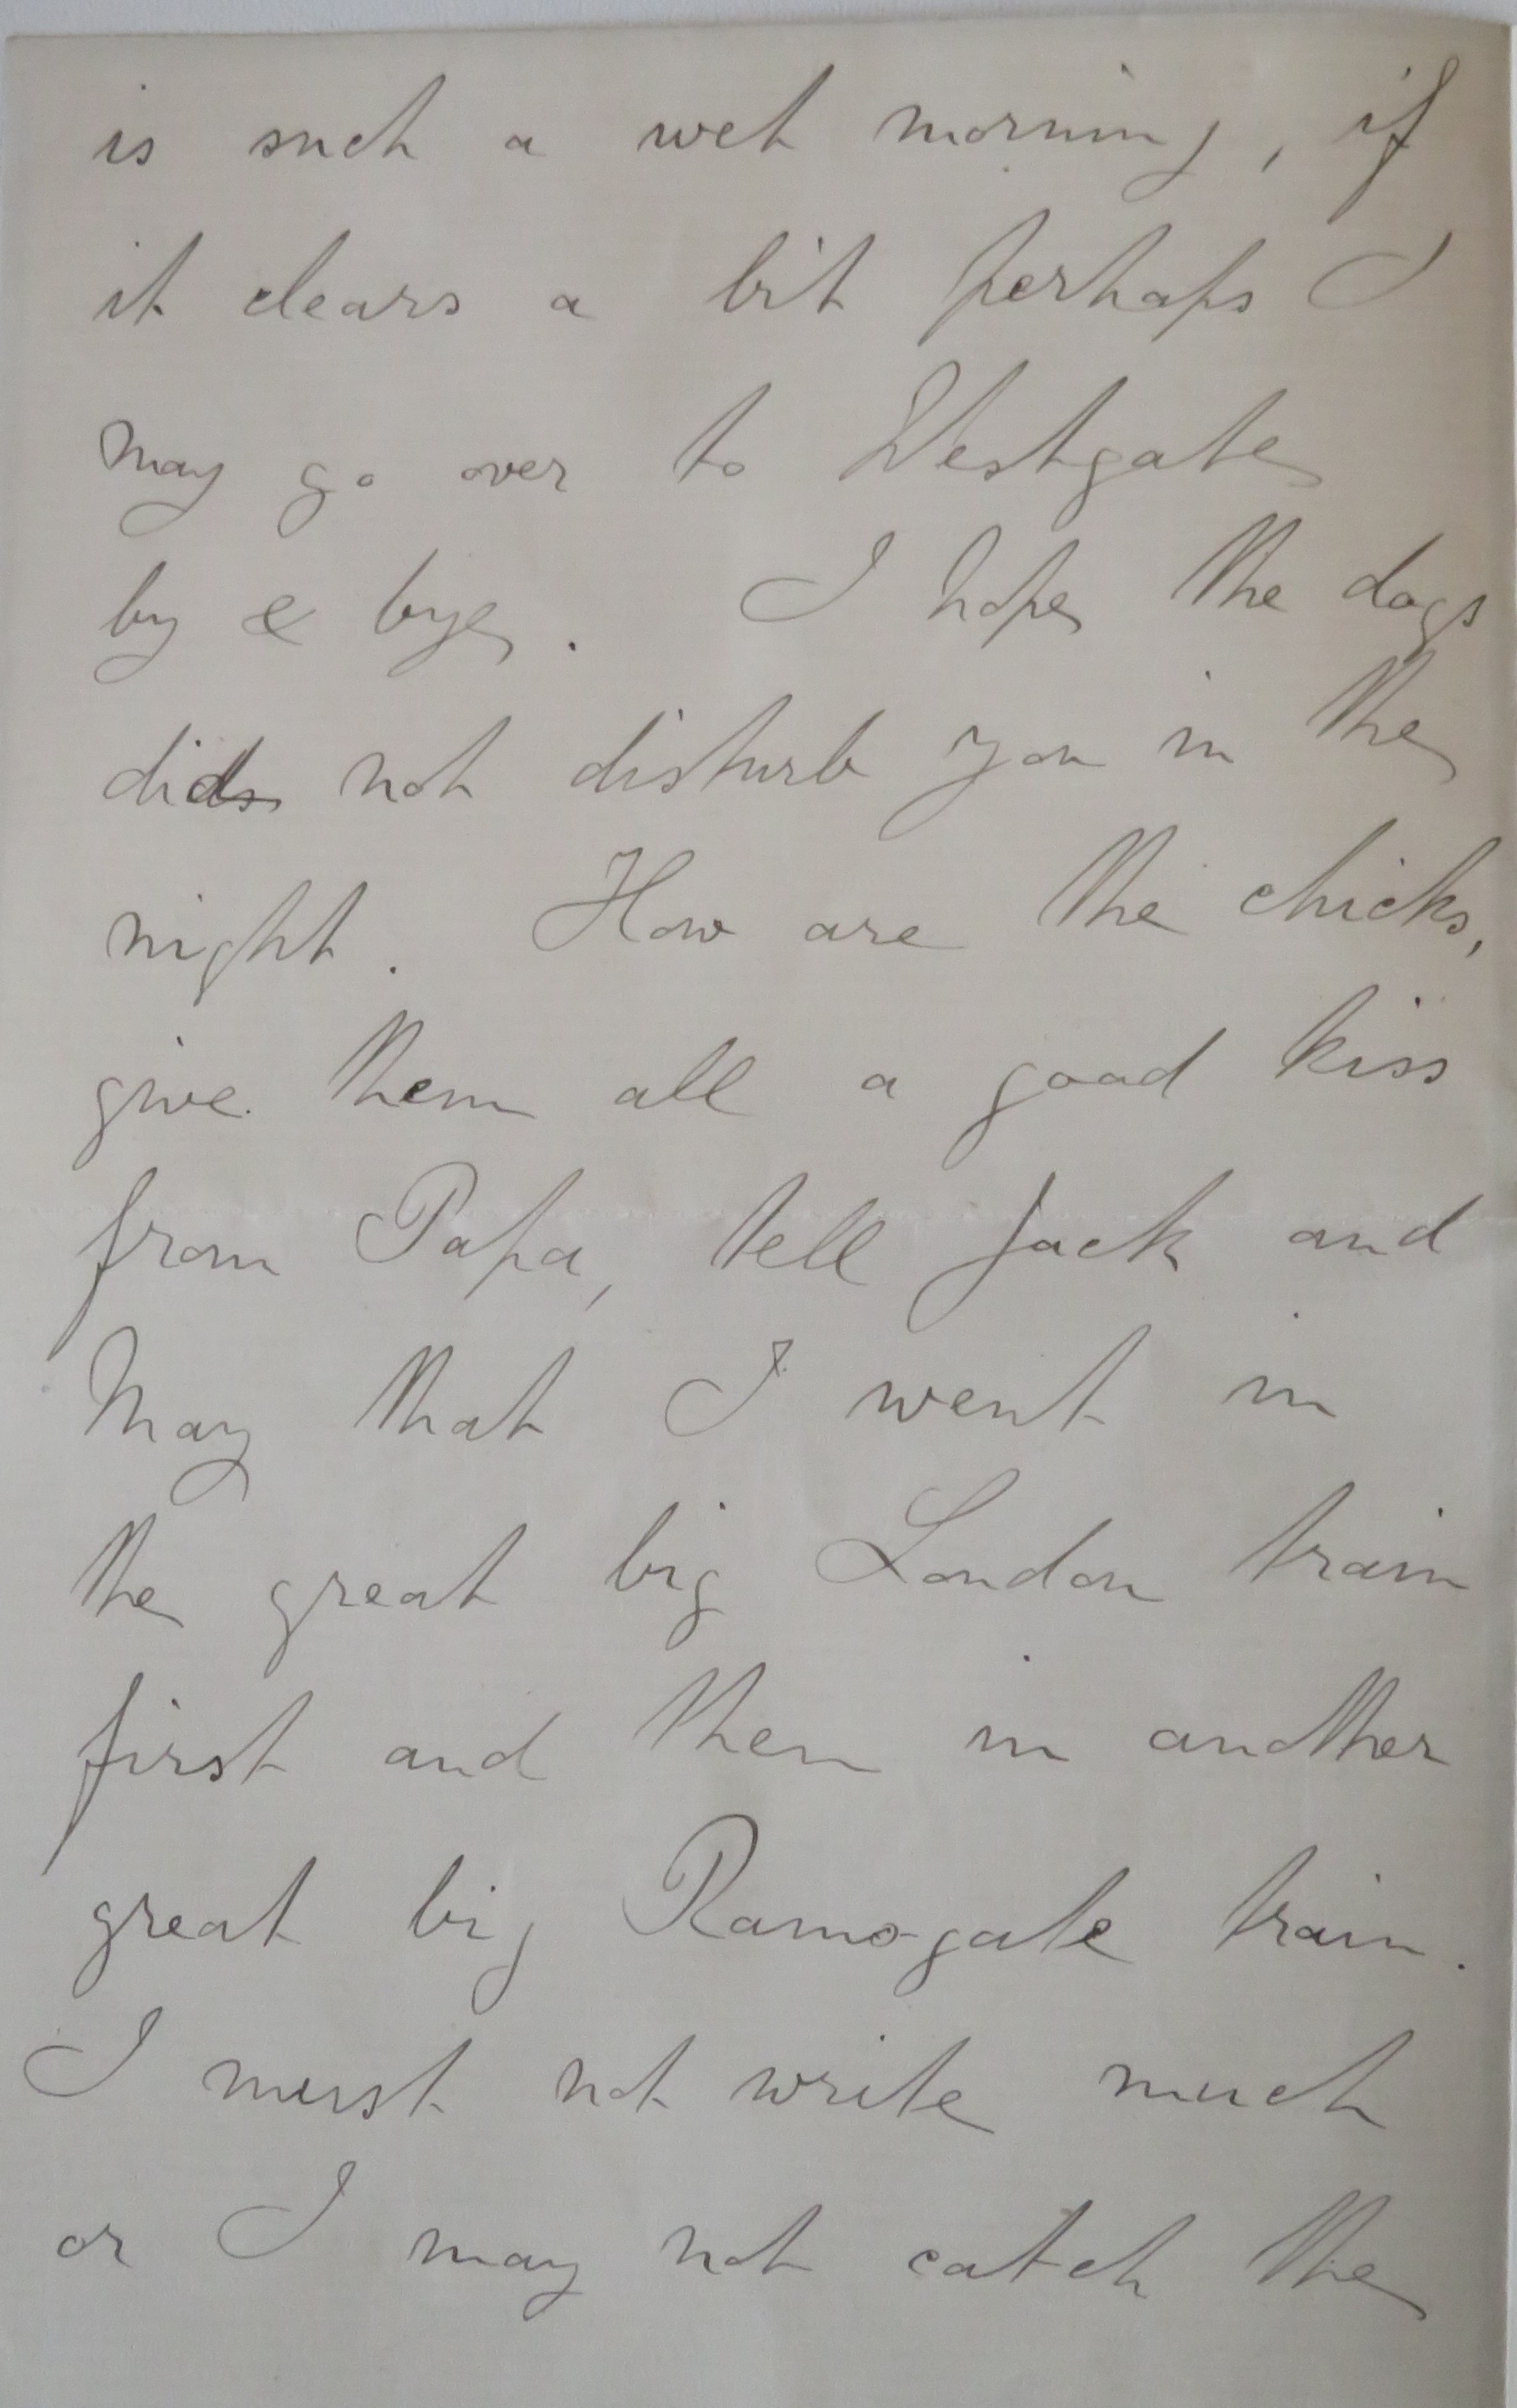 is such a wet morning, if
it clears a bit perhaps I
may go over to Westgate
by & bye. I hope the dogs
did not disturb you in the
night. How are the chicks,
give them all a good kiss
from Papa, tell Jack and
May that I went in
the great big London train
first and then in another
great big Ramsgate train.
I must not write much
or I may not catch the